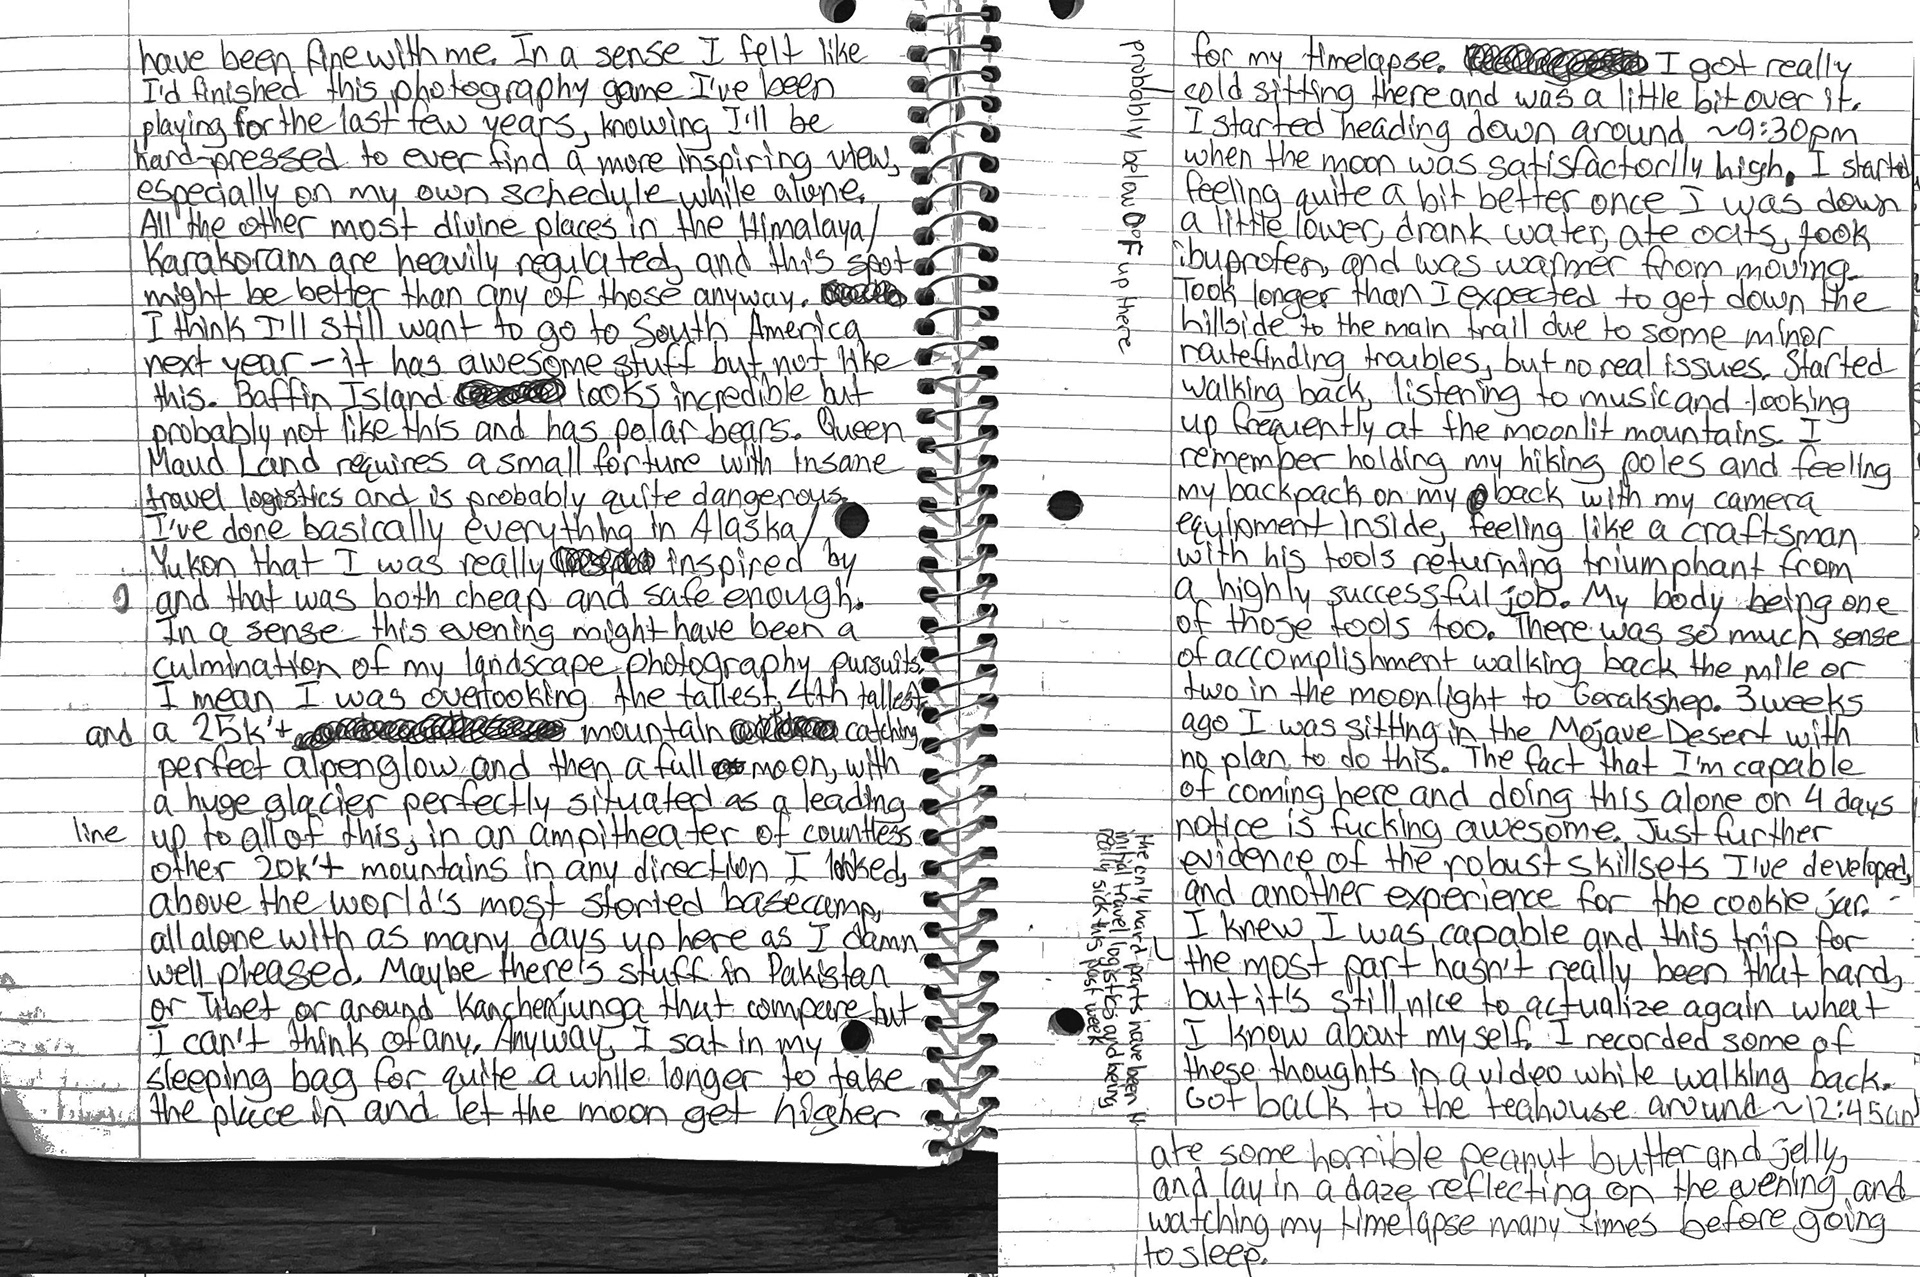 have been fine with me. In a sense I felt like
I'd finished this photography game I've been
playing for the last few years, knowing I'll be
hard-pressed to ever find a more inspiring view,
especially on my own schedule while alone.
All the other most divine places in the Himalaya/
Karakoram are heavily regulated, and this spot
might be better than any of those anyway.
I think I'll still want to go to South America
next year - it has awesome stuff but not like
this. Baffin Island looks incredible but
probably not like this and has polar bears. Queen
Maud Land requires a small fortune with insane
travel logistics and is probably quite dangerous.
I've done basically everything in Alaska/
Yukon that I was really inspired by
and that was both cheap and safe enough.
In a sense this evening might have been a
culmination of my landscape photography pursuits.
I mean I was overlooking the tallest, 4th tallest,
and a 25k'+ mountain catching
perfect alpenglow and then a full moon, with
a huge glacier perfectly situated as a leading
line up to all of this, in an ampitheater of countless
other 20k'+ mountains in any direction I looked,
above the world's most storied basecamp,
all alone with as many days up here as I damn
well pleased. Maybe there's stuff in Pakistan
or Tibet or around Kanchenjunga that compare but
I can't think of any. Anyway, I sat in my
sleeping bag for quite a while longer to take
the place in and let the moon get higher
for my timelapse. I got really
cold sitting there and was a little bit over it.
probably below 0°F up there
I started heading down around ~9:30pm
when the moon was satisfactorily high. I started
feeling quite a bit better once I was down
a little lower, drank water, ate oats, took
ibuprofen, and was warmer from moving.
Took longer than I expected to get down the
hillside to the main trail due to some minor
routefinding troubles, but no real issues. Started
walking back, listening to music and looking
up frequently at the moonlit mountains. I
remember holding my hiking poles and feeling
my backpack on my back with my camera
equipment inside, feeling like a craftsman
with his tools returning triumphant from
a highly successful job. My body being one
of those tools too. There was so much sense
of accomplishment walking back the mile or
two in the moonlight to Gorakshep. 3 weeks
ago I was sitting in the Mojave Desert with
no plan to do this. The fact that I'm capable
of coming here and doing this alone on 4 days
notice is fucking awesome. Just further
evidence of the robust skillsets I've developed,
and another experience for the cookie jar.
I knew I was capable and this trip for
the most part hasn't really been that hard,
the only hard parts have been the
initial travel logistics and being
really sick this past week
but it's still nice to actualize again what
I know about myself. I recorded some of
these thoughts in a video while walking back.
Got back to the teahouse around ~12:45am
ate some horrible peanut butter and jelly,
and lay in a daze reflecting on the evening and
watching my timelapse many times before going
to sleep.